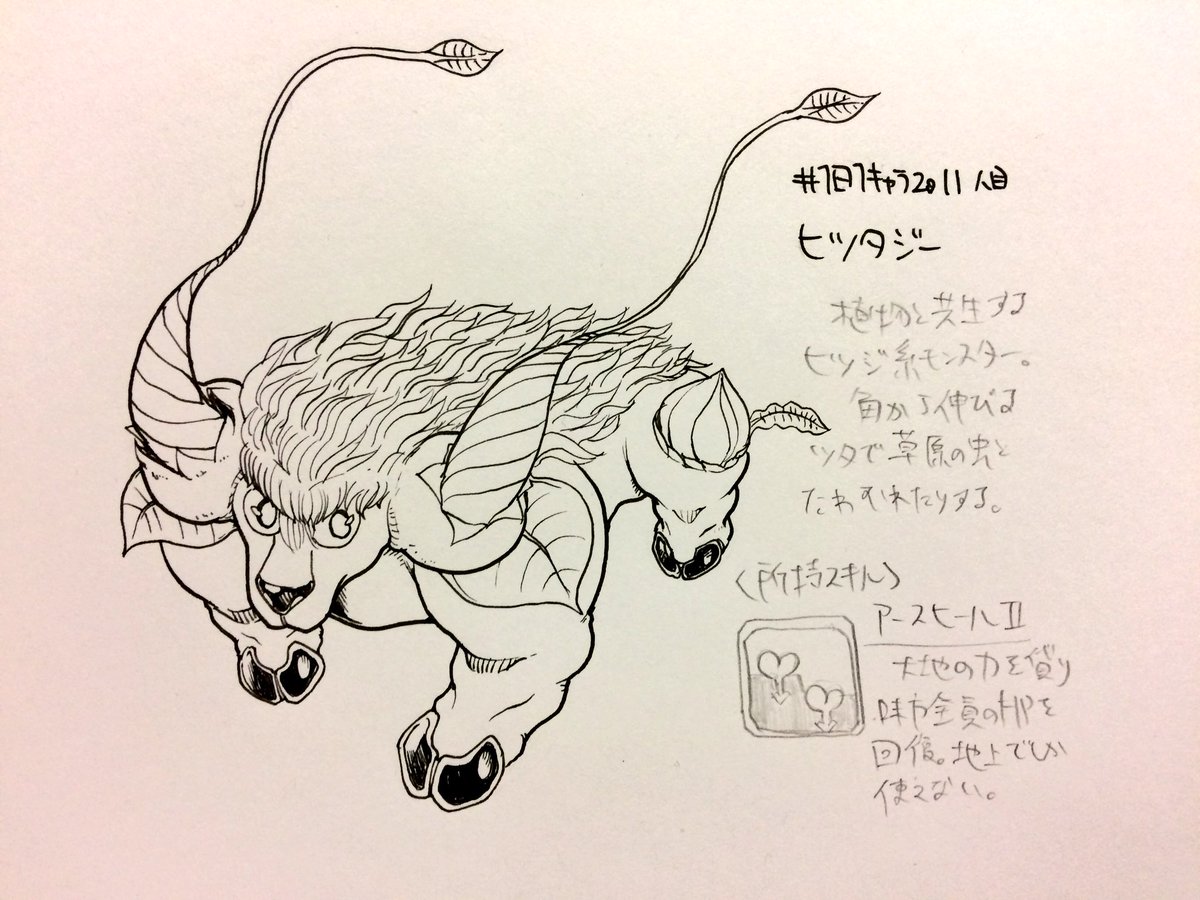 #1日1キャラ2011人目
ヒツタジー
植物と共生する
ヒツジ系モンスター。
角から伸びる
ツタで草原の虫と
たわむれたりする。
〈所持スキル〉
アースヒールⅡ
大地の力を借り
味方全員のHPを
回復。地上でしか
使えない。